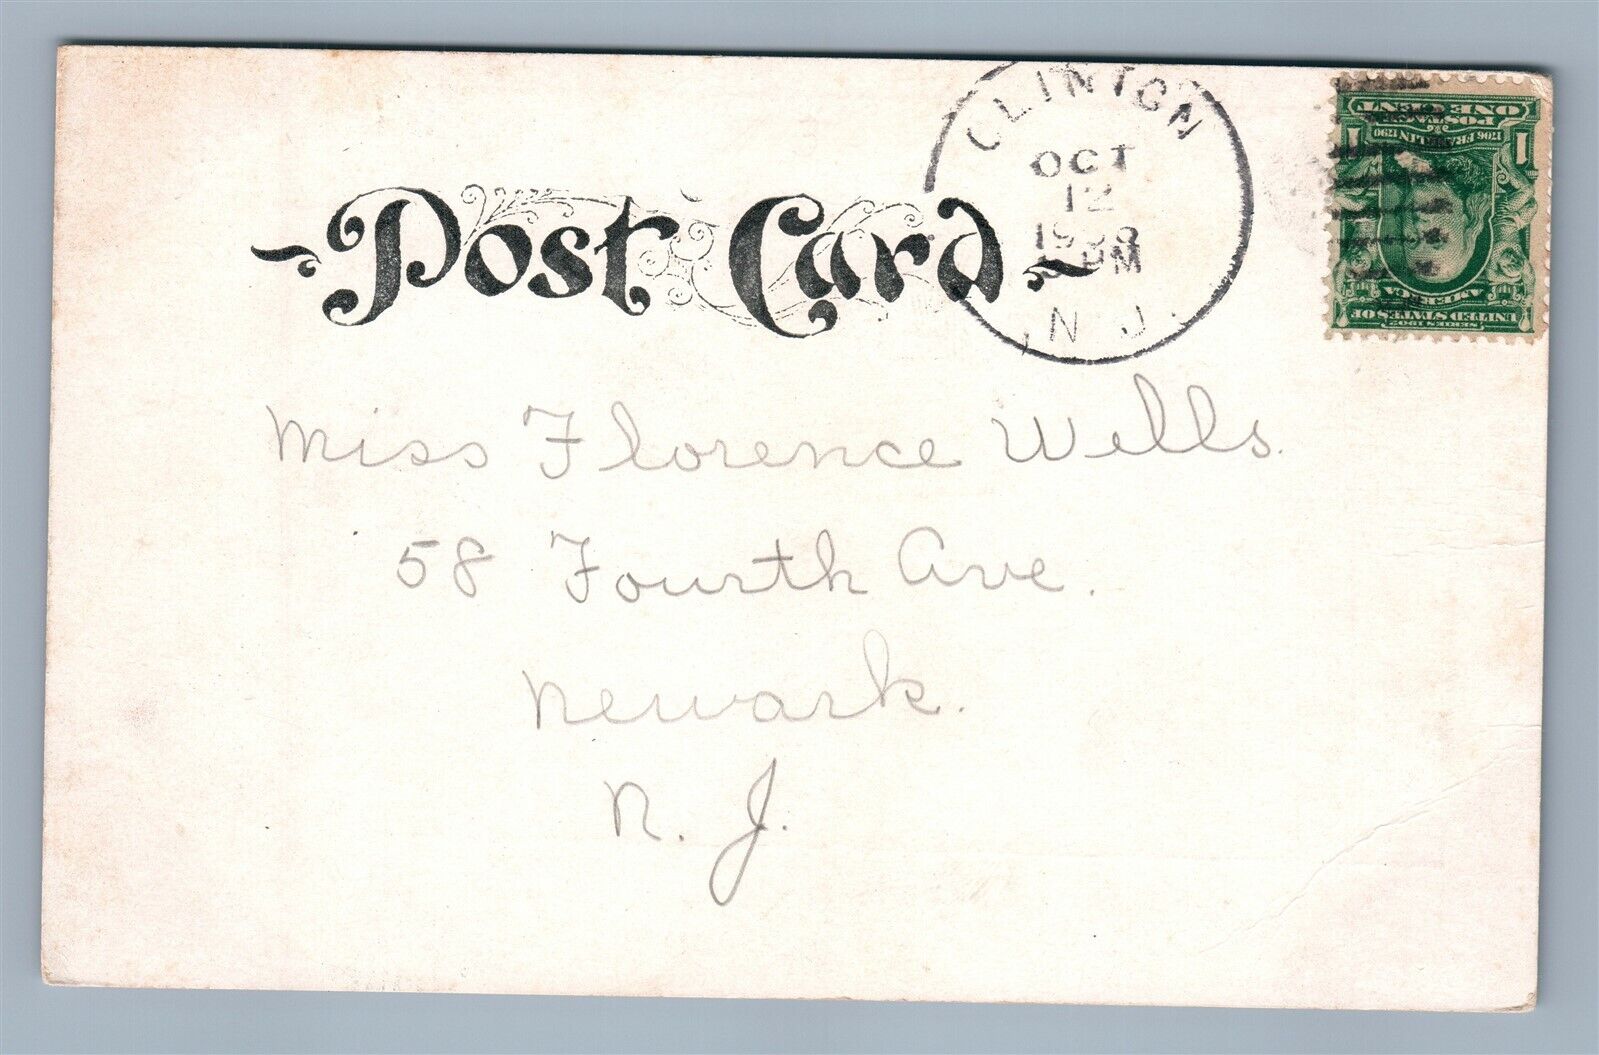 CLINTON
OCT
12
1908
PM
N.J.
ONE CENT
POSTAGE
1706 FRANKLIN 1790
1 1
UNITED STATES OF
AMERICA
SERIES 1902
Post Card
Miss Florence Wells.
58 Fourth Ave.
Newark.
N. J.